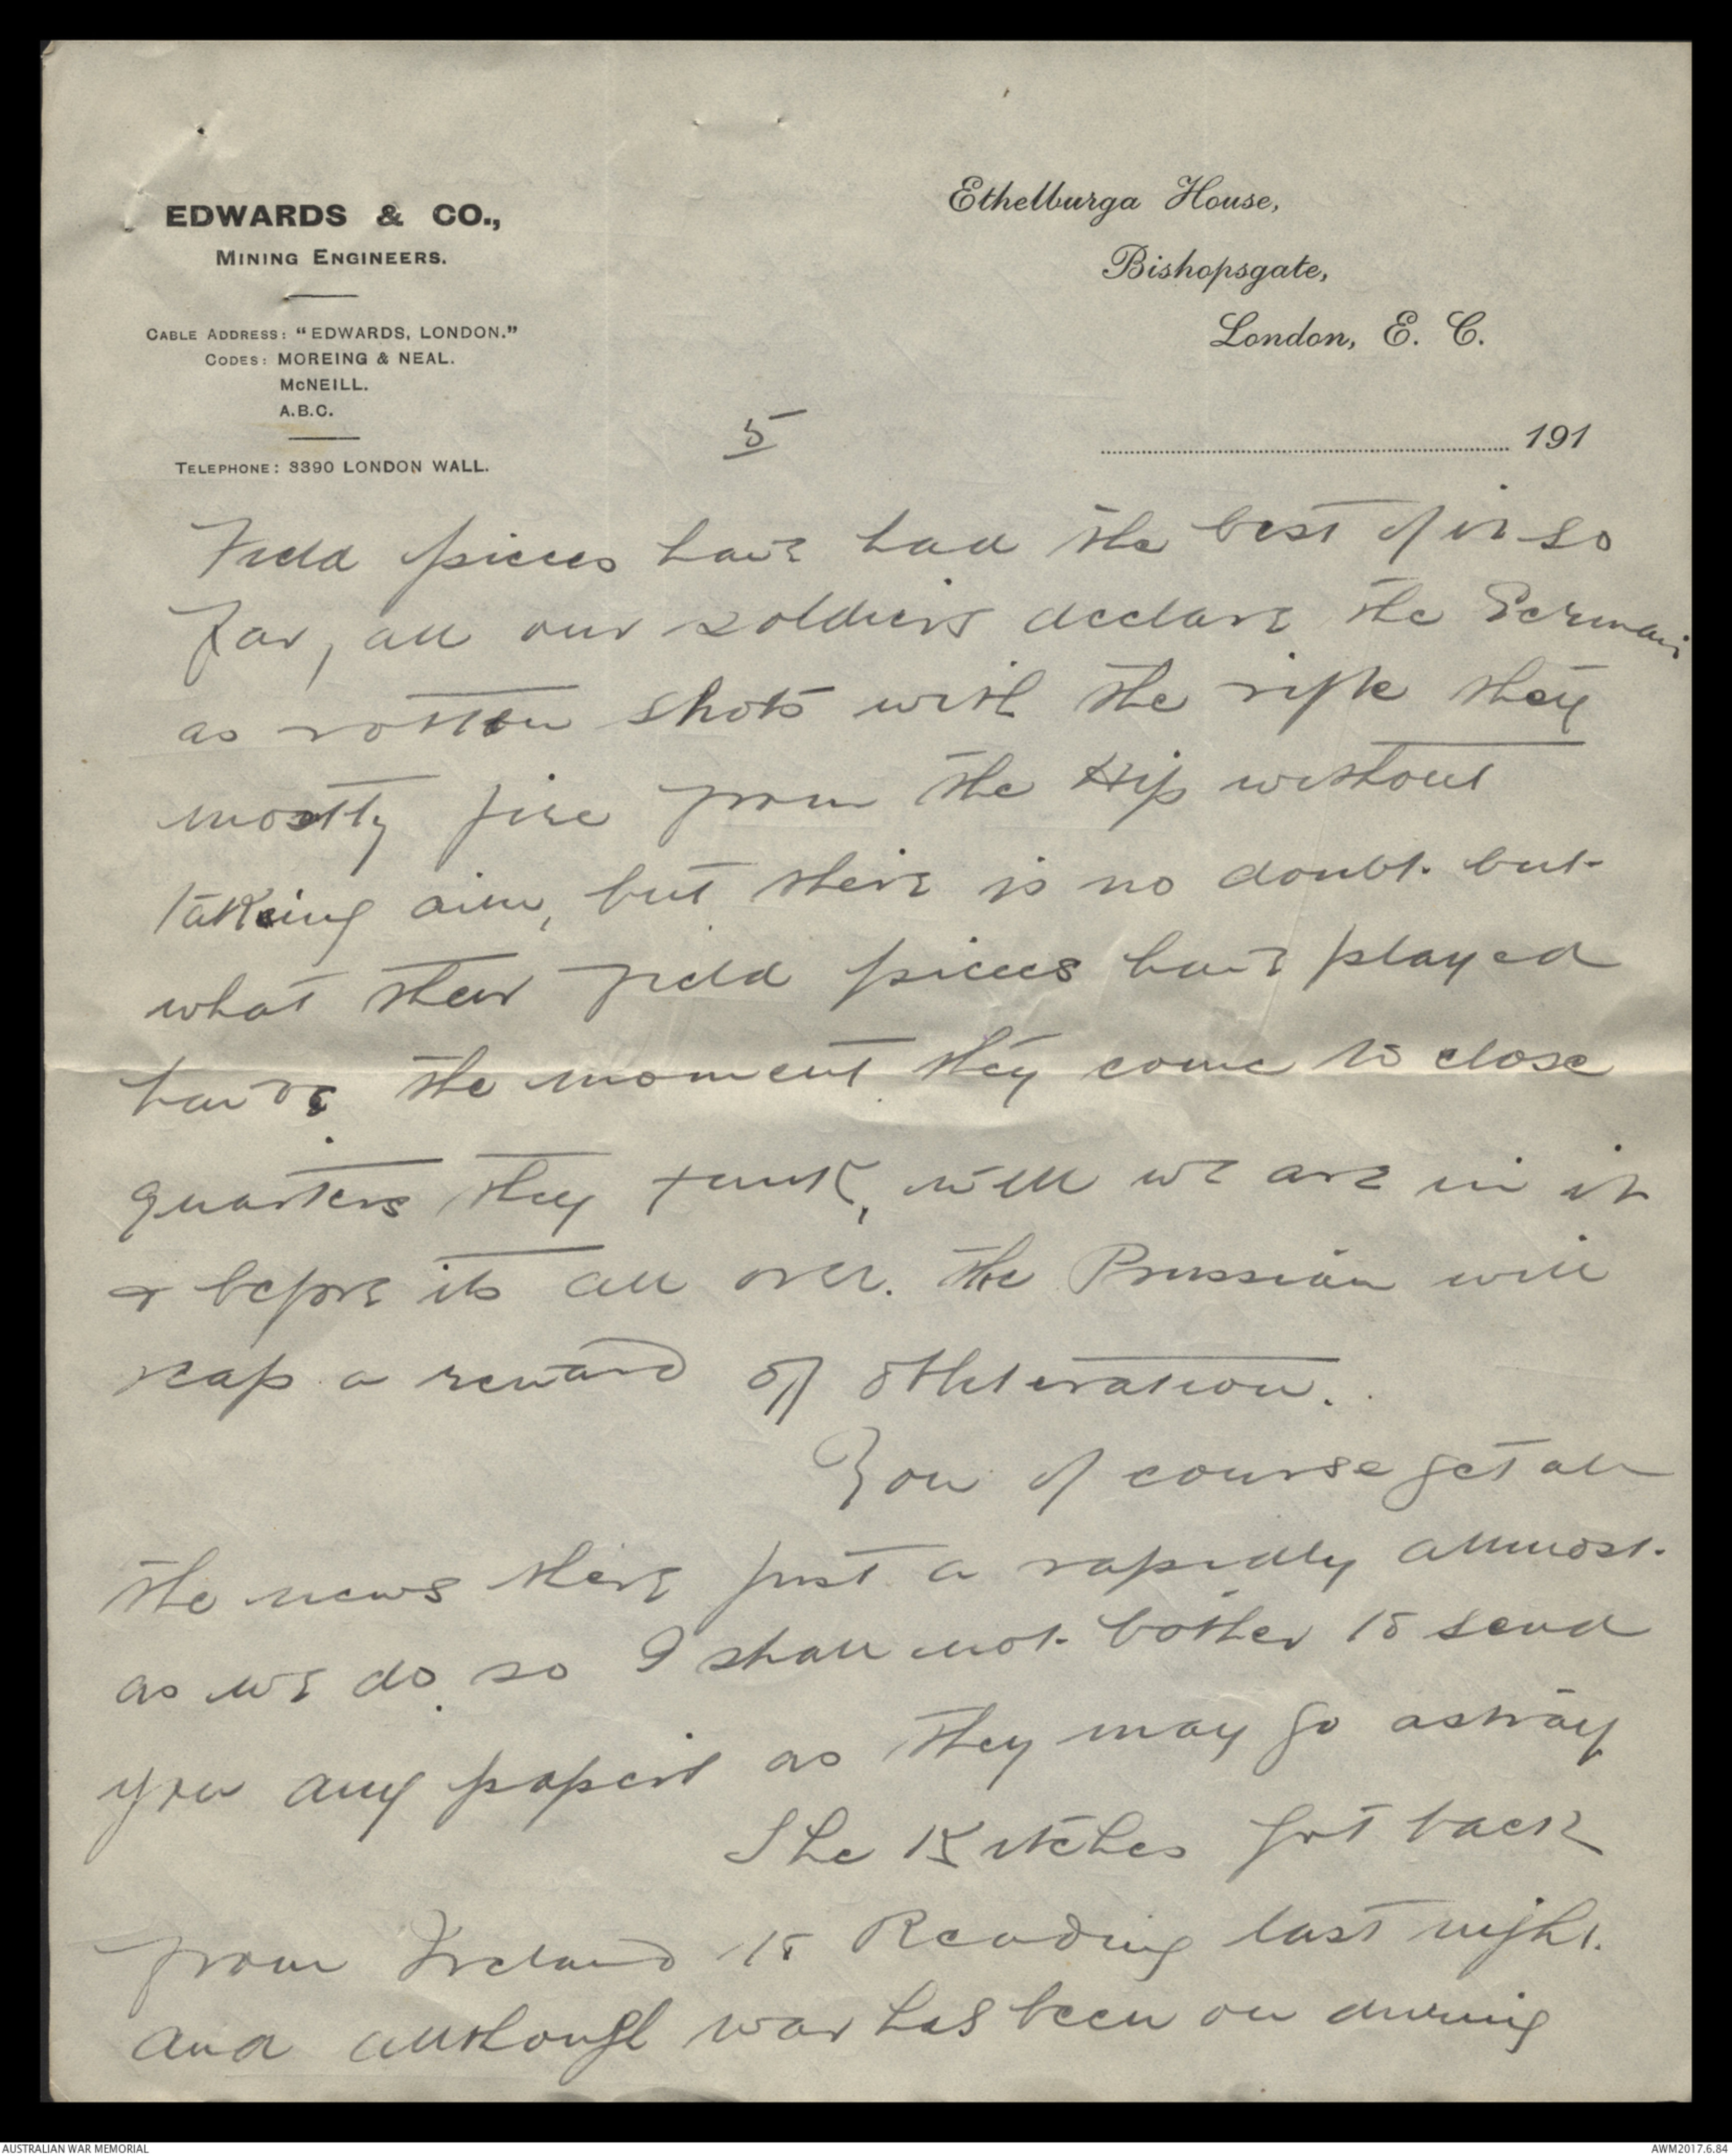 EDWARDS & CO.,
MINING ENGINEERS.
CABLE ADDRESS: "EDWARDS, LONDON."
CODES: MOREING & NEAL.
McNEILL.
A.B.C.
TELEPHONE: 3390 LONDON WALL.
Ethelburga House,
Bishopsgate,
London, E. C.
191
5
Field pieces have had the best of it so
far, all our soldiers declare the Germans
as rotten shots with the rifle they
mostly fire from the Hip without
taking aim, but there is no doubt but
what their field pieces have played
the moment they come to close
quarters they funk, well we are in it
& before its all over. the Prussian will
reap a reward of obliteration.
You of course get all
the news there just a rapidly allmost
as we do so I shall not bother to send
you any papers as they may go astray
The Kitches got back
from Ireland to Reading last night.
and allthough war has been on during
AUSTRALIAN WAR MEMORIAL
AWM2017.6.84